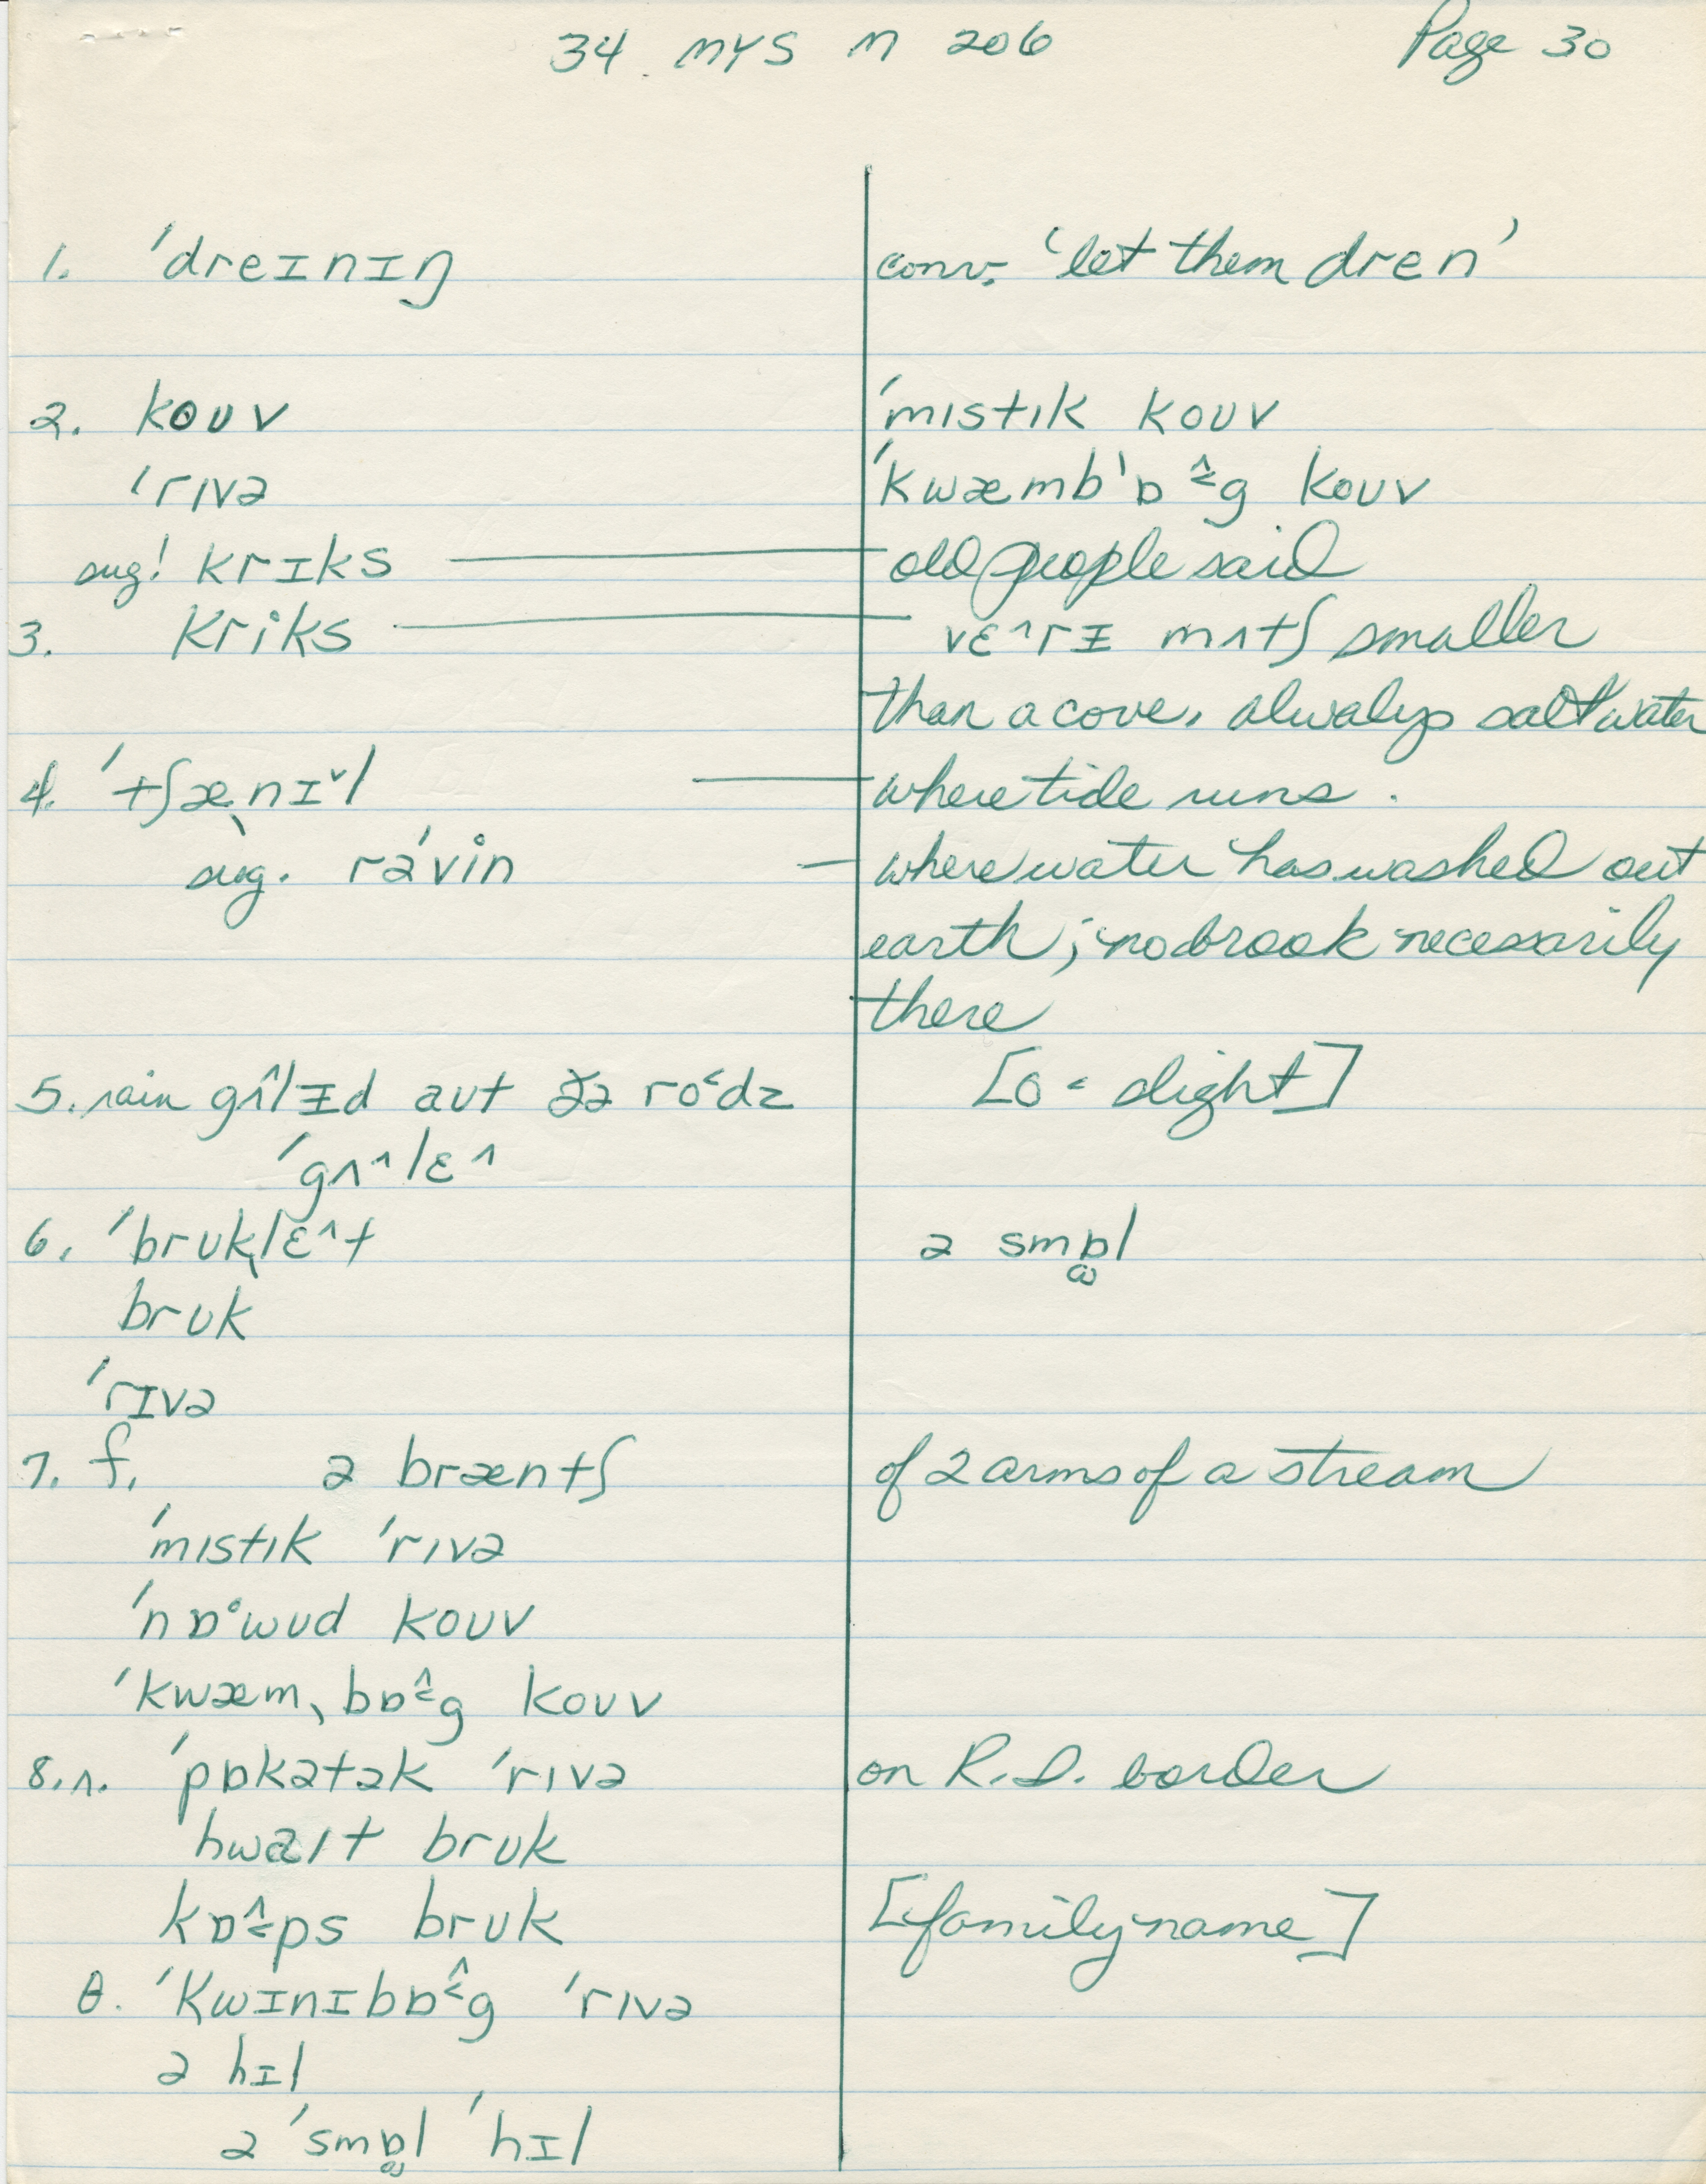 34 MYS M 206 Page 30
1. 'dreɪnɪŋ conv. ‘let them dren’
2. kouv 'mɪstɪk kouv
'rɪvə 'kwæmb'ɒ^<g kouv
sug! krɪks — old people said
3. kriks — vɛ^rɪ mʌtʃ smaller
than a cove, always salt water
4. 'tʃæˌnɪˇl — where tide runs.
sug. rə'vin — where water has washed out
earth; no brook necessarily
there
5. rain gʌ^lɪd aut ðə ro<dz [o< slight]
'gʌ^lɛ^
6. 'brukˌlɛ^t ə smɒl
bruk
'rɪvə
7. f. ə bræntʃ of 2 arms of a stream
'mɪstɪk 'rɪvə
'nɒ·wud kouv
'kwæmˌbɒ^<g kouv
8. n. 'pɒkətək 'rɪvə on R.I. border
hwaɪt bruk
kɒ^<ps bruk [family name]
θ. 'kwɪnɪbɒ^<g 'rɪvə
ə hɪl
ə 'smɒl 'hɪl